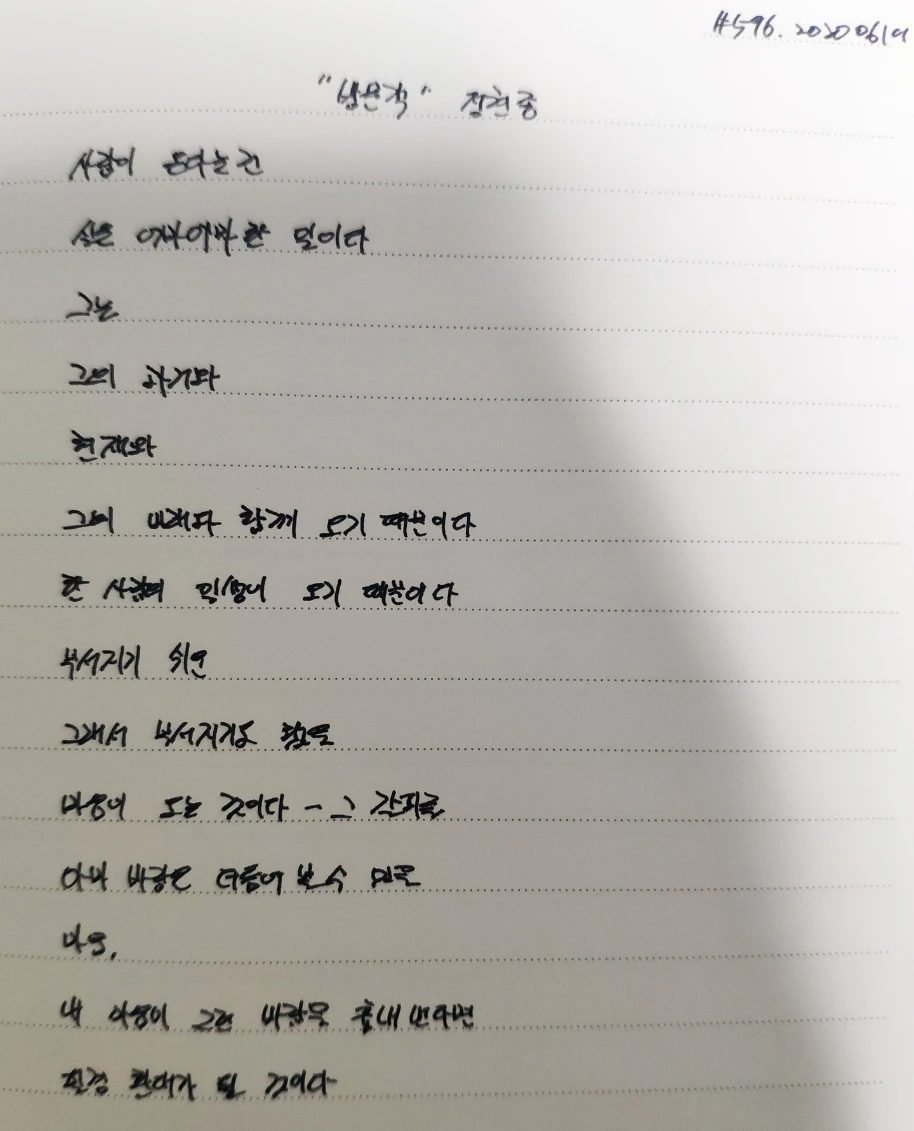 #596. 20200619
"방문객" 정현종
사람이 온다는 건
실은 어마어마한 일이다
그는
그의 과거와
현재와
그의 미래와 함께 오기 때문이다
한 사람의 일생이 오기 때문이다
부서지기 쉬운
그래서 부서지기도 했을
마음이 오는 것이다 - 그 갈피를
아마 바람은 더듬어 볼 수 있을
마음,
내 마음이 그런 바람을 흉내 낸다면
필경 환대가 될 것이다